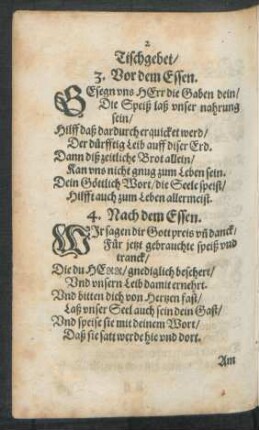 2
Tischgebet/
3. Vor dem Essen.
GEsegn vns HErr die Gaben dein/
Die Speiß laß vnser nahrung
sein/
Hilff daß dardurch erquicket werd/
Der dürfftig Leib auff diser Erd.
Dann diß zeitliche Brot allein/
Kan vns nicht gnug zum Leben sein.
Dein Göttlich Wort/ die Seele speist/
Hilfft auch zum Leben allermeist.
4. Nach dem Essen.
WIr sagen dir Gott preis vñ danck/
Für jetzt gebrauchte speiß vnd
tranck/
Die du HERR/ gnediglich beschert/
Vnd vnsern Leib damit ernehrt.
Vnd bitten dich von Hertzen fast/
Laß vnser Seel auch sein dein Gast/
Vnd speise sie mit deinem Wort/
Daß sie satt werde hie vnd dort.
Am